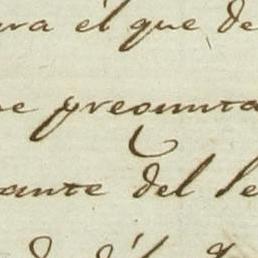 ara él que de
ue pregunta
ante del Se